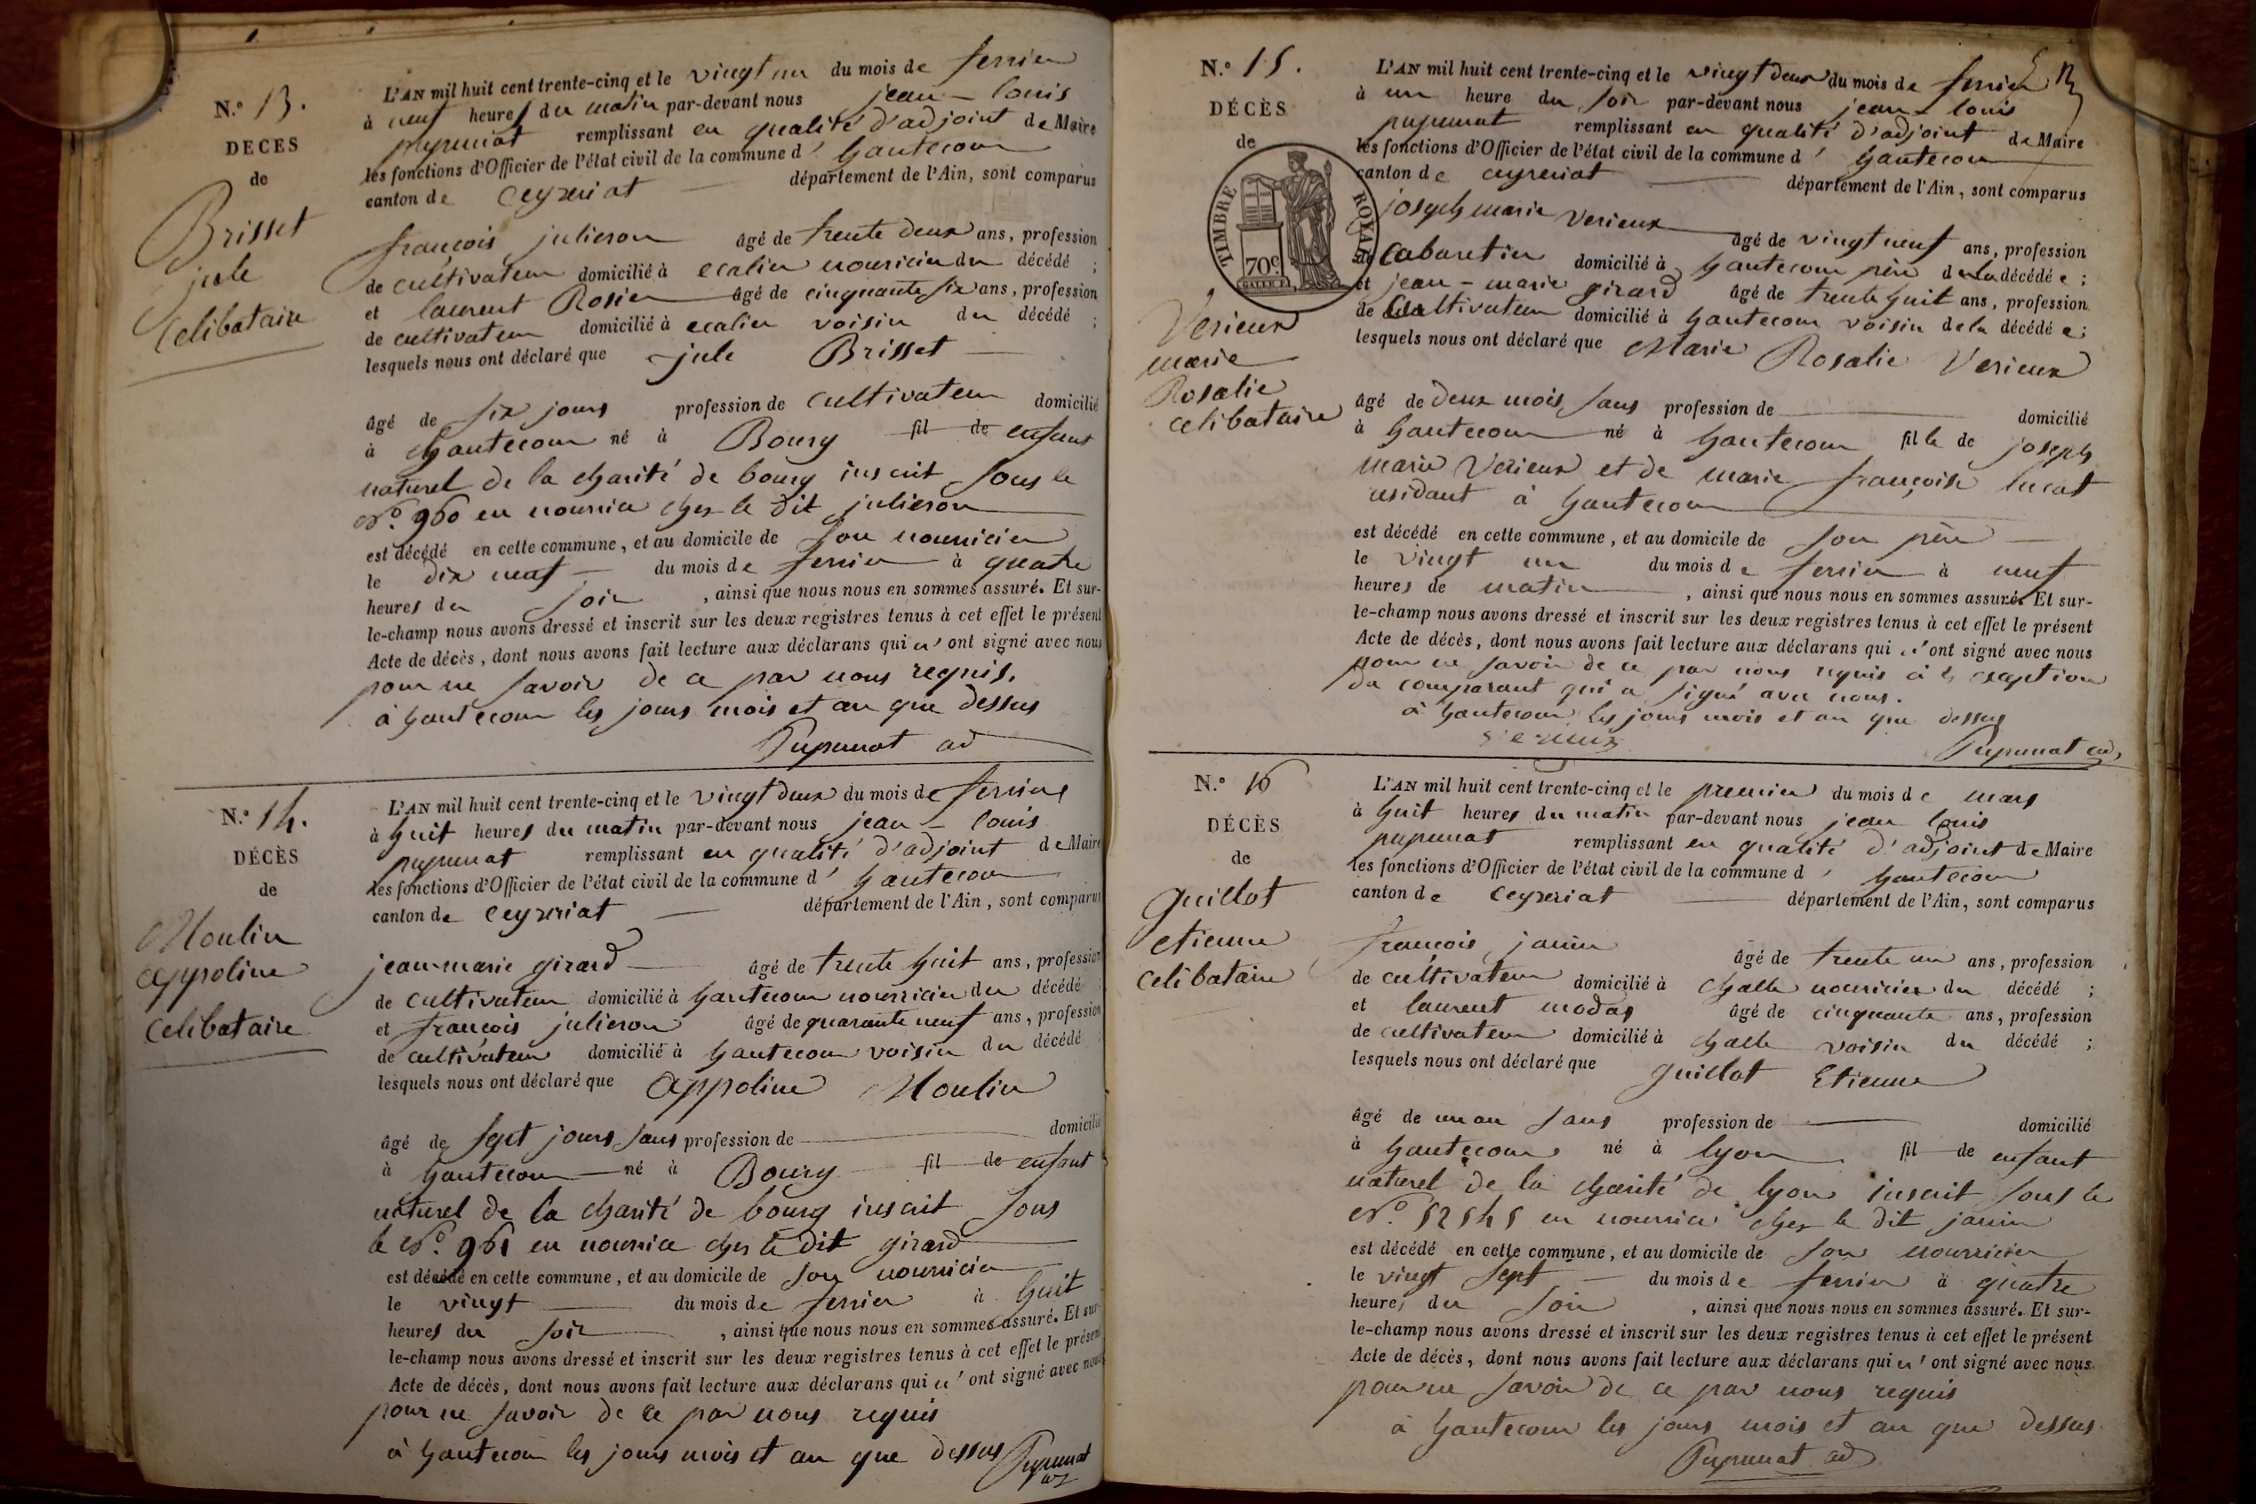 N.° 13.
DECES
de
Brisset
jule
Celibataire
L'AN mil huit cent trente-cinq et le vingt un du mois de fevrier
à neuf heures du matin par-devant nous jean-louis
pupunat remplissant en qualité d'adjoint de Maire
les fonctions d'Officier de l'état civil de la commune d' hautecour
canton de Ceyzeriat département de l'Ain, sont comparus
françois julieron âgé de trente deux ans, profession
de cultivateur domicilié à ecalier nouricier du décédé ;
et laurent Rosier âgé de cinquante six ans, profession
de cultivateur domicilié à ecalier voisin du décédé ;
lesquels nous ont déclaré que jule Brisset
âgé de six jours profession de cultivateur domicilié
à hautecour né à Bourg fil de enfant
naturel de la charité de bourg inscrit sous le
N.° 960 en nourrice chez le dit julieron
est décédé en cette commune, et au domicile de son nourricier
le dix neuf du mois de fevrier à quatre
heures du soir , ainsi que nous nous en sommes assuré. Et sur-
le-champ nous avons dressé et inscrit sur les deux registres tenus à cet effet le présent
Acte de décès, dont nous avons fait lecture aux déclarans qui n'ont signé avec nous
pour ne savoir de ce par nous requis.
à hautecour les jours mois et an que dessus
Pupunat ad
N.° 14.
DÉCÈS
de
Moulin
appoline
Celibataire
L'AN mil huit cent trente-cinq et le vingt deux du mois de fevrier
à huit heures du matin par-devant nous jean-louis
pupunat remplissant en qualité d'adjoint de Maire
les fonctions d'Officier de l'état civil de la commune d' hautecour
canton de Ceyzeriat département de l'Ain, sont comparus
jean-marie girard âgé de trente huit ans, profession
de cultivateur domicilié à hautecour nourricier du décédé
et françois julieron âgé de quarante neuf ans, profession
de cultivateur domicilié à hautecour voisin du décédé
lesquels nous ont déclaré que appoline Moulin
âgé de sept jours sans profession de domicilié
à hautecour né à Bourg fil de enfant
naturel de la charité de bourg inscrit sous
le N.° 961 en nourrice chez le dit girard
est décédé en cette commune, et au domicile de son nourricier
le vingt du mois de fevrier à huit
heures du soir , ainsi que nous nous en sommes assuré. Et sur-
le-champ nous avons dressé et inscrit sur les deux registres tenus à cet effet le présent
Acte de décès, dont nous avons fait lecture aux déclarans qui n'ont signé avec nous
pour ne savoir de ce par nous requis
à hautecour les jours mois et an que dessus Pupunat
ad
N.° 15.
DÉCÈS
de
TIMBRE ROYAL
70c.
Verieux
marie
Rosalie
celibataire
L'AN mil huit cent trente-cinq et le vingt deux du mois de fevrier
à un heure du soir par-devant nous jean-louis
pupunat remplissant en qualité d'adjoint de Maire
les fonctions d'Officier de l'état civil de la commune d' hautecour
canton de ceyzeriat département de l'Ain, sont comparus
joseph marie verieux âgé de vingt neuf ans, profession
de Cabaretier domicilié à hautecour père de la décédée ;
et jean-marie girard âgé de trente huit ans, profession
de Cultivateur domicilié à hautecour voisin de la décédée ;
lesquels nous ont déclaré que Marie Rosalie Verieux
âgé de deux mois sans profession de domicilié
à hautecour né à hautecour fille de joseph
marie Verieux et de marie françoise lucat
residant à hautecour
est décédé en cette commune, et au domicile de son père
le vingt un du mois de fevrier à neuf
heures de matin , ainsi que nous nous en sommes assuré. Et sur-
le-champ nous avons dressé et inscrit sur les deux registres tenus à cet effet le présent
Acte de décès, dont nous avons fait lecture aux déclarans qui n'ont signé avec nous
pour ne savoir de ce par nous requis à l'exeption
du comparant qui a signé avec nous.
à hautecour les jours mois et an que dessus
Pupunat ad
N.° 16
DÉCÈS
de
guillot
etienne
celibataire
L'AN mil huit cent trente-cinq et le premier du mois de mars
à huit heures du matin par-devant nous jean louis
pupunat remplissant en qualité d'adjoint de Maire
les fonctions d'Officier de l'état civil de la commune d' hautecour
canton de Ceyzeriat département de l'Ain, sont comparus
françois janin âgé de trente un ans, profession
de cultivateur domicilié à challe nouricier du décédé ;
et laurent modas âgé de cinquante ans, profession
de cultivateur domicilié à challe voisin du décédé ;
lesquels nous ont déclaré que guillot Etienne
âgé de un an sans profession de domicilié
à hautecour né à lyon fil de enfant
naturel de la charité de lyon inscrit sous le
N.° 52545 en nourrice chez le dit janin
est décédé en cette commune, et au domicile de son nourricier
le vingt sept du mois de fevrier à quatre
heures du soir , ainsi que nous nous en sommes assuré. Et sur-
le-champ nous avons dressé et inscrit sur les deux registres tenus à cet effet le présent
Acte de décès, dont nous avons fait lecture aux déclarans qui n'ont signé avec nous
pour ne savoir de ce par nous requis
à hautecour les jours mois et an que dessus
Pupunat ad